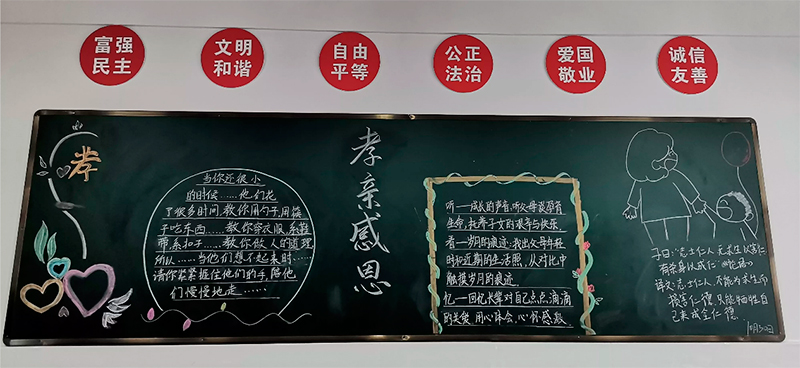 富强
民主
文明
和谐
自由
平等
公正
法治
爱国
敬业
诚信
友善
孝
当你还很小
的时候……他们花
了很多时间,教你用勺子,用筷
子吃东西……教你穿衣服、系鞋
带、系扣子……教你做人的道理
所以……当他们想不起来时……
请你紧紧握住他们的手,陪他
们慢慢地走……
孝亲感恩
听一成长的声音,听父母谈孕育
生命,抚养子女的艰辛与快乐
看一岁月的痕迹:找出父母年轻
时和近期的生活照,从对比中
触摸岁月的痕迹
忆一回忆长辈对自己点点滴滴
的关爱,用心体会,心怀感激
子曰:“志士仁人,无求生以害仁
有杀身以成仁。”
译文:志士仁人,不能为求生而
损害仁德,只能牺牲自
己来成全仁德。
月30日